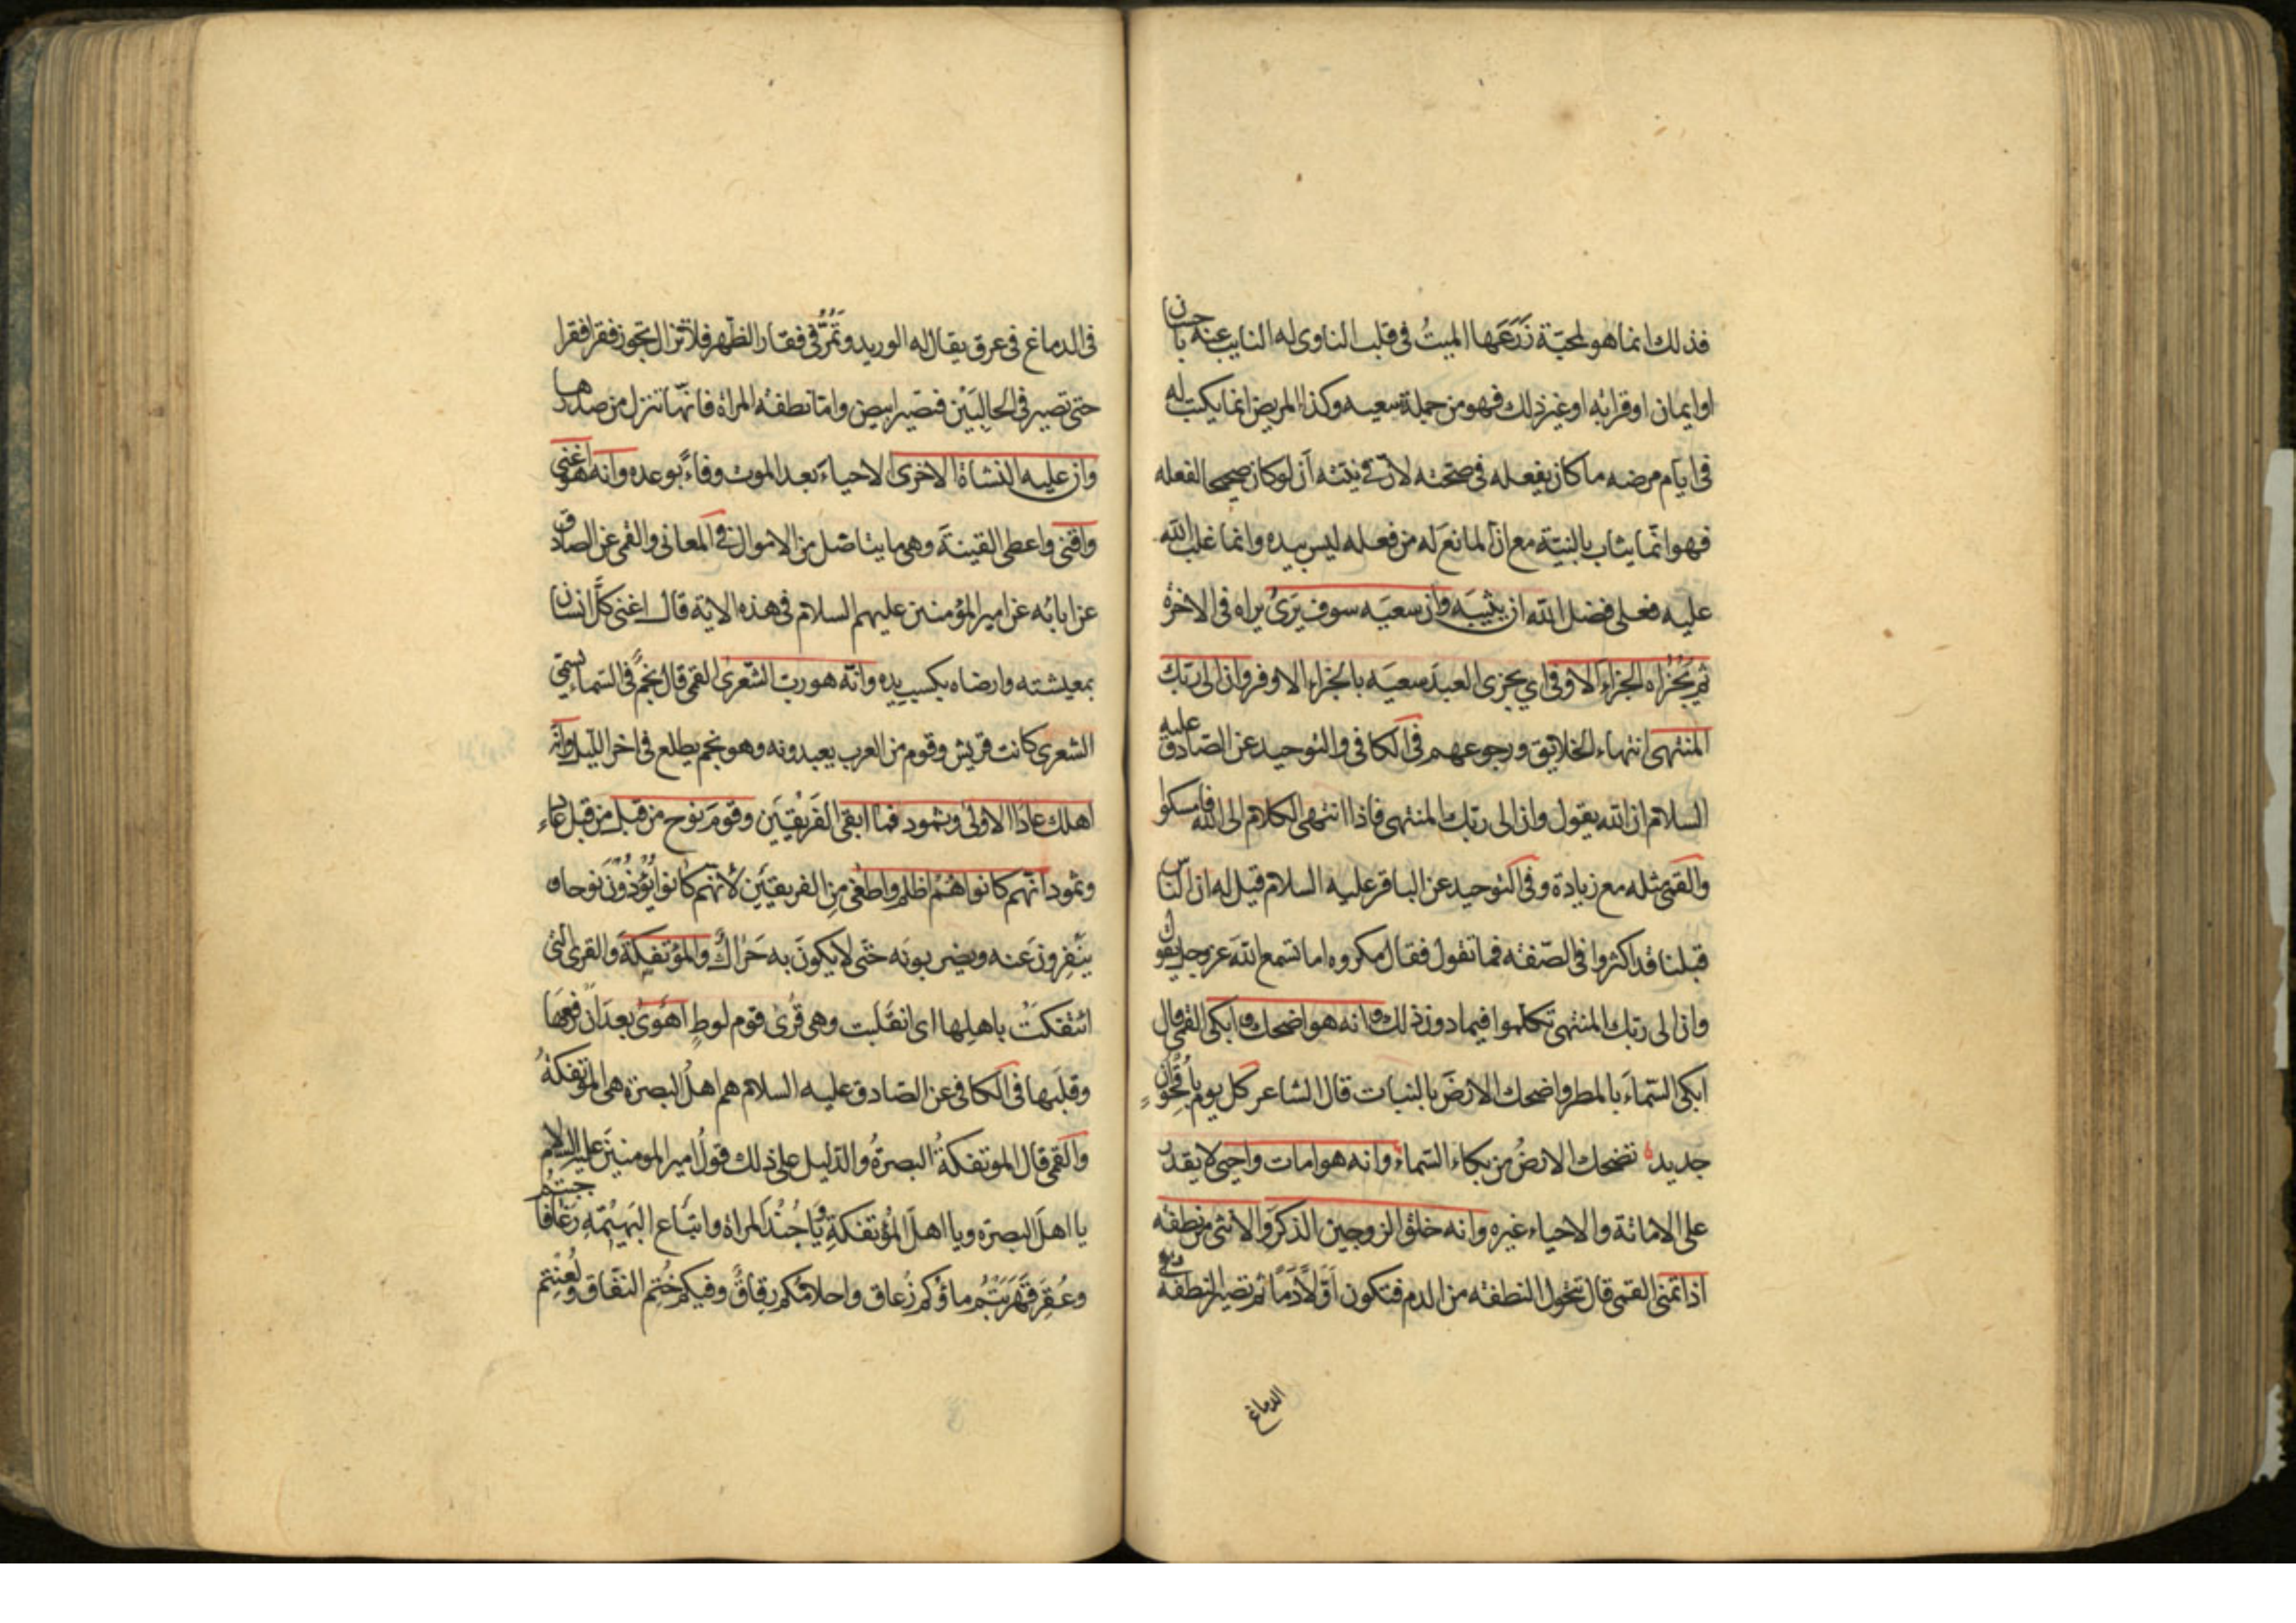 فذلك انما هو لمحبّة زَرَعَها الميتُ فى قلب الناوى له النايب عنه باحسان
او ايمان او قرابه او غير ذلك فهو من جملة سعيه وكذا المريض انما يكتب له
فى ايام مرضه ما كان يفعله فى صحته لان فى نيته ان لو كان صحيحا لفعله
فهو انما يثاب بالنيّة مع ان المانع له من فعله ليس بيده وانما غلب الله
عليه فعلى فضل الله ان يثيبه وان سعيه سوف يرى يراه فى الاخرة
ثم يجزاه الجزاء الاوفى اى يجزى العبد سعيه بالجزاء الاوفر وان الى ربك
المنتهى انتهاء الخلايق ورجوعهم فى الكافى والتوحيد عن الصّادق عليه
السلام ان الله يقول وان الى ربك المنتهى فاذا انتهى الكلام الى الله فامسكوا
والقمى مثله مع زيادة وفى التوحيد عن الباقر عليه السلام قيل له ان الناس
قبلنا قد اكثروا فى الصّفه فما تقول فقال مكروه اما تسمع الله عز وجل يقول
وان الى ربك المنتهى تكلموا فيما دون ذلك وانه هو اضحك وابكى القمى قال
ابكى السّماء بالمطر واضحك الارض بالنبات قال الشاعر كل يوم باقحوان
جديد تضحك الارضُ من بكاء السّماء وانه هو امات واحيى لا يقدر
على الاماتة والاحياء غيره وانه خلق الزوجين الذكر والانثى من نطفه
اذا تمنى القمى قال تتحول النطفه من الدم فتكون اوّلا دمًا ثم تصير النطفه فى
الدماغ
فى الدماغ فى عرق يقال له الوريد وتَمُرُّ فى فقار الظّهر فلا تزال تجوز فقرا فقرا
حتى تصير فى الحالبَيْن فتصير ابيض واما نطفه المراة فانّها تنزل من صدرها
وان عليه النشاة الاخرى الاحياء بعد الموت وفاءً بوعده وانه هو اغنى
واقنى واعطى القينة وهى ما يتاصّل من الاموال فى المعانى والقمى عن الصادق
عن ابائه عن امير المؤمنين عليهم السلام فى هذه الاية قال اغنى كلَّ انسان
بمعيشته وارضاه بكسب يده وانّه هو ربّ الشّعرى القمى قال نجمٌ فى السّماء يسمّى
الشعرى كانت قريش وقوم من العرب يعبدونه وهو نجم يطلع فى اخر الليل وانّه
اهلك عادًا الاولى وثمود فما ابقى الفَريْقَيَن وقومَ نوحٍ من قبل من قبل عاد
وثمود انّهم كانوا هُمْ اظلم واطغى مِن الفريقين لانّهم كانوا يُؤذُوْنَ نوحا و
ينفرون عنه ويضربونه حتّى لا يكونَ به حَراكٌ والمُؤتفِكةَ والقرى التى
ائتفكتْ باهلِها اى انقلبت وهى قُرى قوم لوطٍ اَهوى بعد ان رفعَها
وقلبها فى الكافى عن الصّادق عليه السلام هم اهلُ البصرة هى المؤتفكةُ
والقمى قال الموتفكةُ البصرةُ والدّليل على ذلك قولُ امير المومنينَ عليه السلام
يا اهلَ البصرة ويا اهلَ المُؤتفكةِ ويا جُنْدَ المراة واتباع البَهيْمَةِ رغا فاجبتُم
وعُقِرَ فَهَرَبتُم ماؤكم زُعاق واحلامُكم رِقاقٌ وفيكم خُتِم النفاق ولُعِنْتم